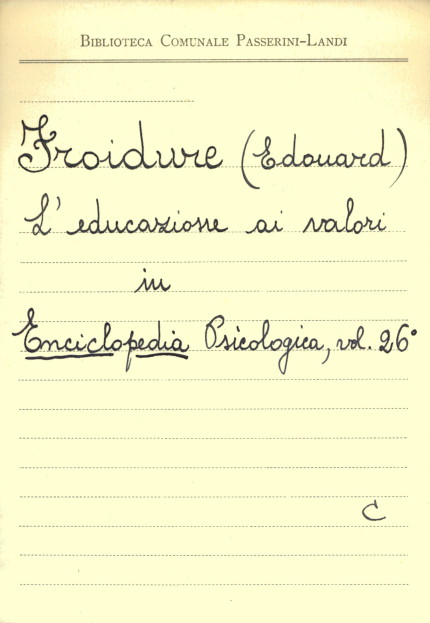 BIBLIOTECA COMUNALE PASSERINI-LANDI
Froidure (Edouard)
L'educazione ai valori
in
Enciclopedia Psicologica, vol. 26°
C